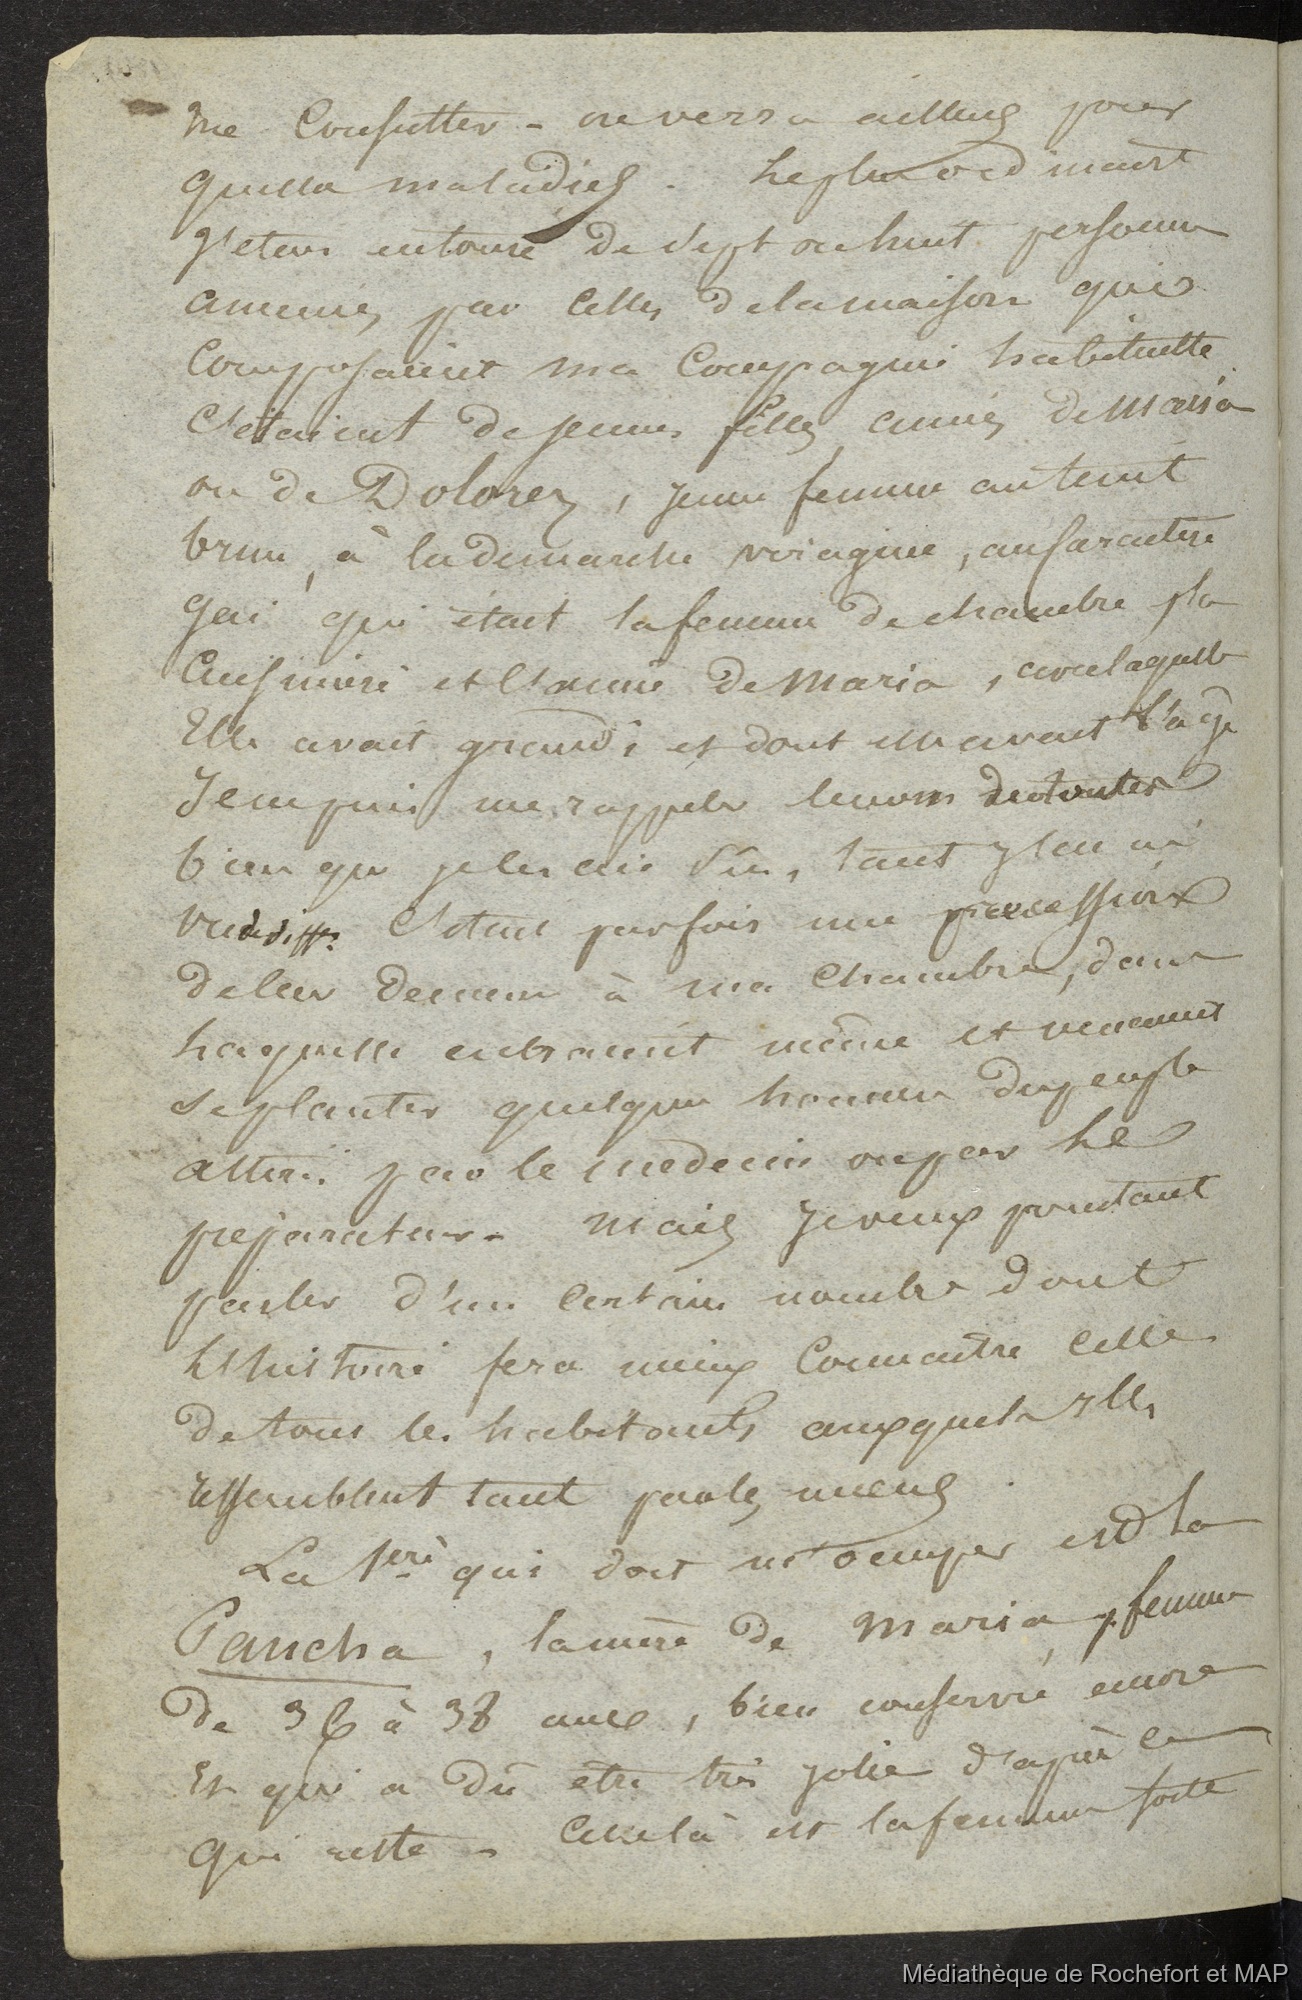 me Consulter - on verra ailleurs pour
quelles maladies. Le plus ordinairt
J'etais entouré de sept ou huit personnes
amenés par celles de la maison qui
Composaient ma Compagnie habituelle
C'étaient de jeunes filles, amies de Maria
ou de Dolorez, jeune femme au teint
brun, à la demarche, au caractère
gai qui était la femme de chambre, la
Cuisiniere et l'amie de Maria, avec laquelle
Elle avait grandi et dont elle avait l'age
Je ne puis me rappeler le nom de toutes
bien que je les aie vu, tant il en
C'était parfois une procession
de leur demeure à ma Chambre, dans
laquelle entraient même et venaient
se planter quelque homme du peuple
attiré par le medecin ou par le
préparateur. Mais je veux pourtant
parler d'un certain nombre dont
L'histoire fera mieux Connaitre celle
de tous les habitants auxquels elles
ressemblent tant par les mœurs
La 1ere qui doit m'occuper est la
Pancha, la mère de Maria, femme
de 36 à 38 ans, bien conservée encore
Et qui a dû être très jolie d'après ce
qui reste - Celle là est la femme forte
Médiathèque de Rochefort et MAP